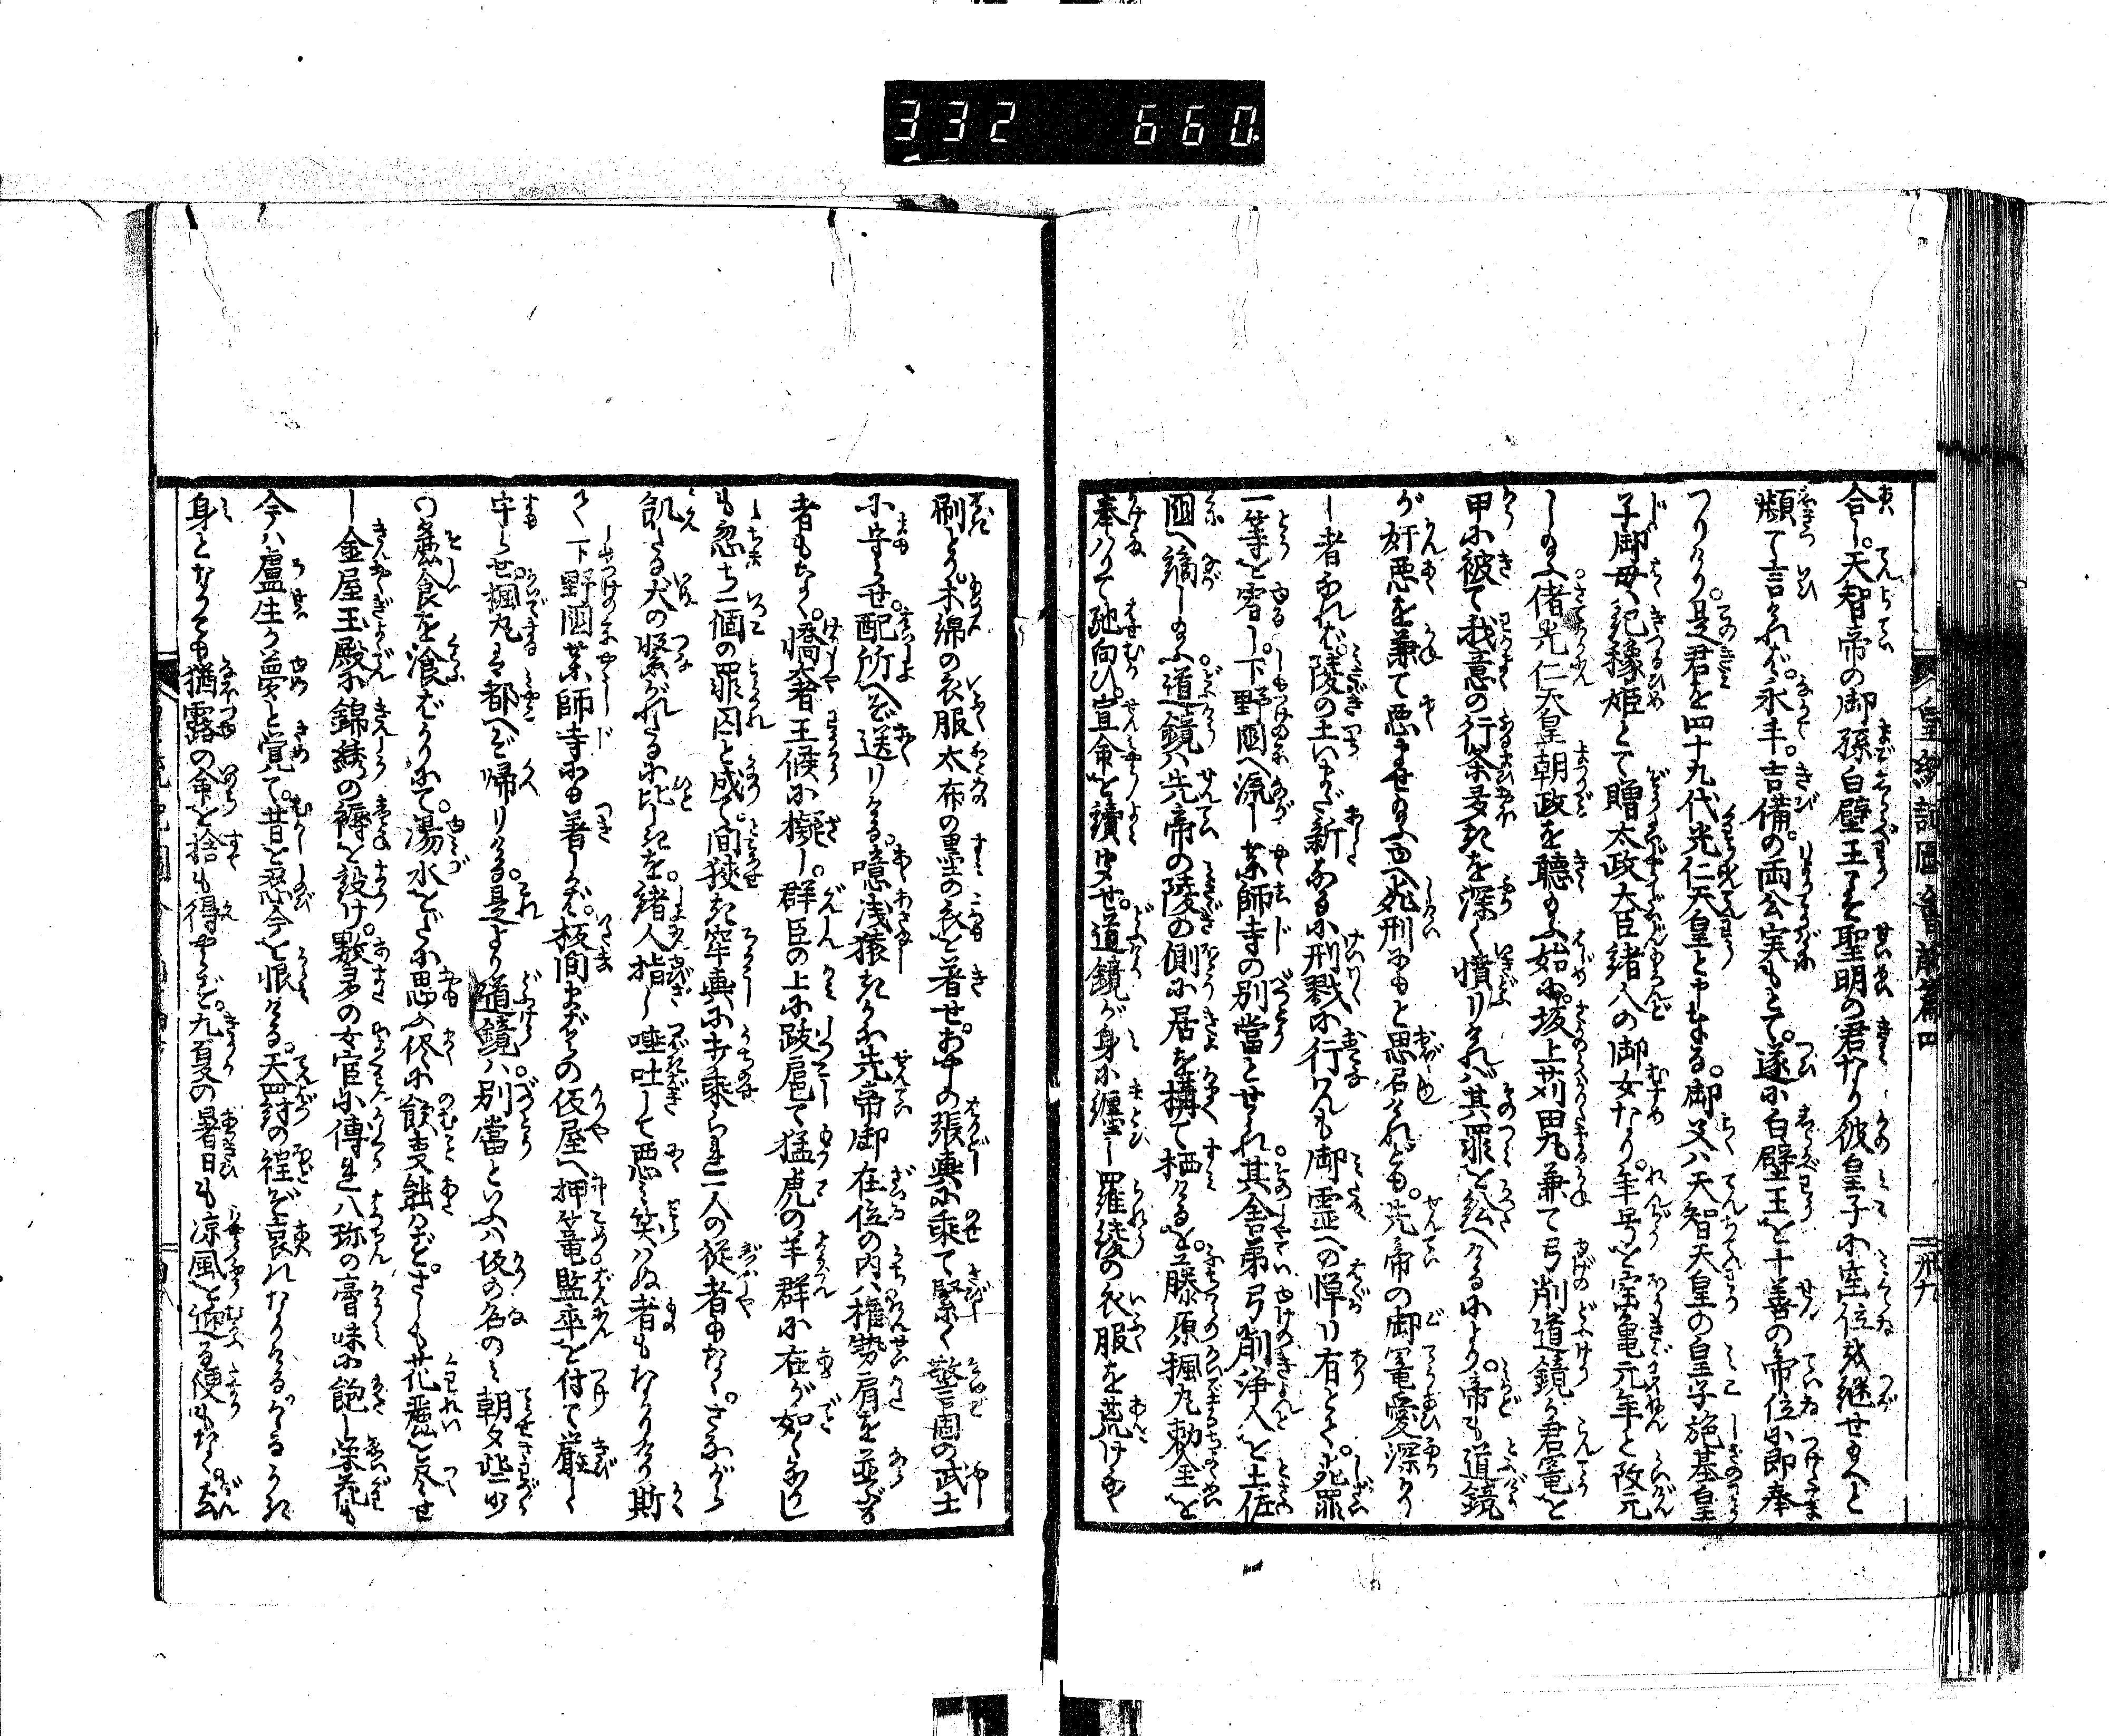 332 660
合し。天智帝の御孫白壁王こそ聖明の君なり彼皇子に宝位を継せ給へと
頻て言けれバ。永手。吉備。の両公実もとて。遂に白壁王を十善の帝位に即奉
つりけり。是君を四十九代光仁天皇と申奉る。御父ハ天智天皇の皇子施基皇
子御母ハ紀橡姫とて贈太政大臣諸人の御女なり。年号を宝亀元年と改元
し給ふ偖光仁天皇朝政を聴給ふ始に。坂上苅田丸兼て弓削道鏡が君寵を
甲に被て我意の行条多きを深く憤りけれバ其罪を訟へけるにより。帝も道鏡
が奸悪を兼て悪ませ給ふ故死刑にもと思召けれども。先帝の御寵愛深かり
し者なれバ。陵の土いまだ新なるに刑戮に行んも御霊への憚り有とて。死罪
一等を宥し。下野国へ流し薬師寺の別当とせられ其舎弟弓削浄人を土佐
国へ謫し給ふ道鏡ハ先帝の陵の側に居を構て栖けるを。藤原楓丸勅命を
奉ハりて馳向ひ。宣命を読聞せ。道鏡が身に纏ひし羅綾の衣服を荒けなく
剥とり。木綿の衣服太布の墨の衣を著せ。おせの張輿に乗て緊く警固の武士
に守らせ。配所へぞ送りける。噫浅猿きかな先帝御在位の内ハ権勢肩を並ぶ
者もなく。憍奢王候に擬し。群臣の上に跋扈て猛虎の羊群に在が如くなりし
も忽ち一個の罪囚と成て。間狭き牢輿に打乗られ一人の従者もなく。さながら
飢たる犬の繋がれたるに比しきを。諸人指し唾吐して悪ミ笑ハぬ者もなかりけり斯
て下野国薬師寺にも著しかバ。板間まばらの仮屋へ押篭監卒を付て厳しく
守らせ。楓丸ハ都へぞ帰りける。是より道鏡ハ。別当といふハ仮の名のミ朝夕些少
の麁食を飡ふばかりにて。湯水をだに思ふ侭に飲事能ハず。さしも花麗を尽せ
し金屋玉殿に錦綉の褥を設け。数多の女官に傅れ八珍の膏味に飽し栄花も
今ハ盧生が夢と覚て。昔を忍び今を恨ける。天罰の程ぞ哀れなりける。かかるうき
身となりても猶露の命を捨も得やらず。九夏の暑日も凉風を迎る便もなく。玄